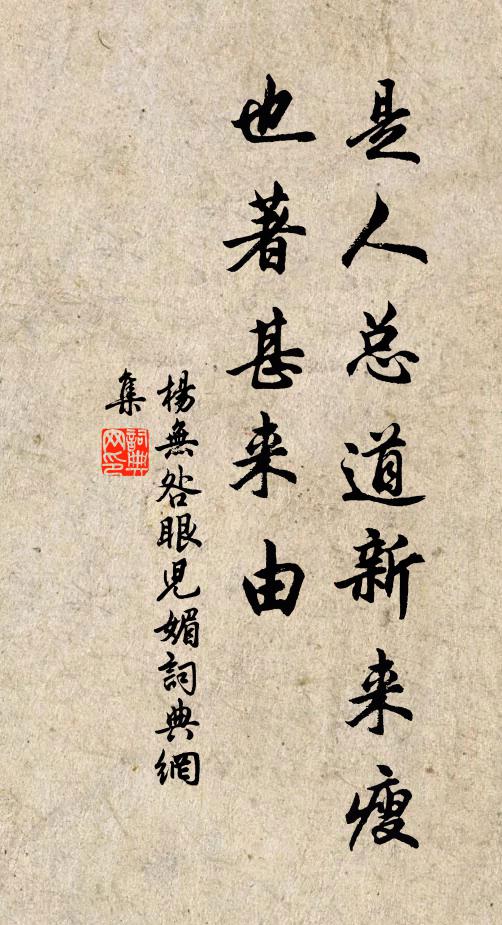 是人总道新来瘦
也著甚来由
楊無咎眼児媚詞典網
集
詞典
网印